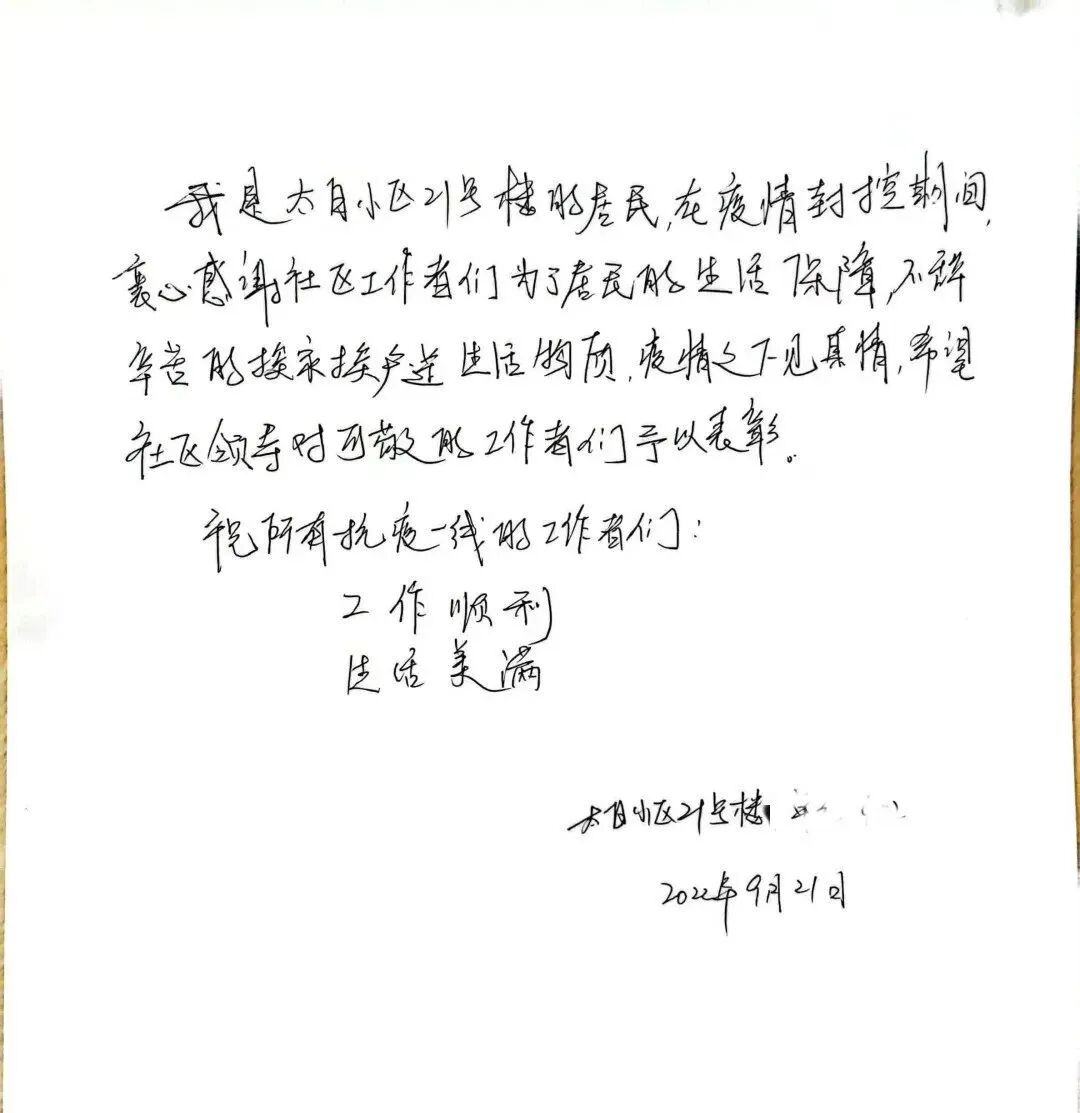 我是太月小区21号楼的居民,在疫情封控期间,
衷心感谢社区工作者们为了居民的生活保障,不辞
辛苦的挨家挨户送生活物质,疫情之下见真情,希望
社区领导对可敬的工作者们予以表彰。
祝所有抗疫一线的工作者们:
工作顺利
生活美满
太月小区21号楼
2022年9月21日